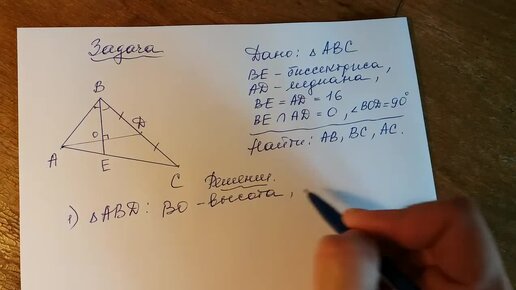 Задача
Дано: △ ABC
BE - биссектриса,
AD - медиана,
BE = AD = 16
BE ∩ AD = O, ∠BOD = 90°
Найти: AB, BC, AC.
B
O
D
A
E
C
Решение.
1) △ABD: BO - высота,